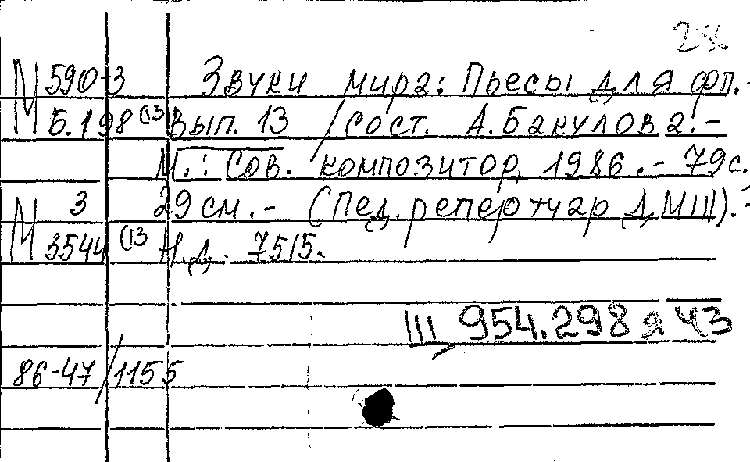 28
М 590-3 Звуки мира: Пьесы для фп.-
Б.198 (13 Вып. 13 / сост. А. Бакулова.-
М.: Сов. композитор, 1986.- 79с.
М 3 29см.- (Пед. репертуар ДМШ).-
3544 (13 Н.д. 7515.
Щ 954.298 я 43
86-47/1155